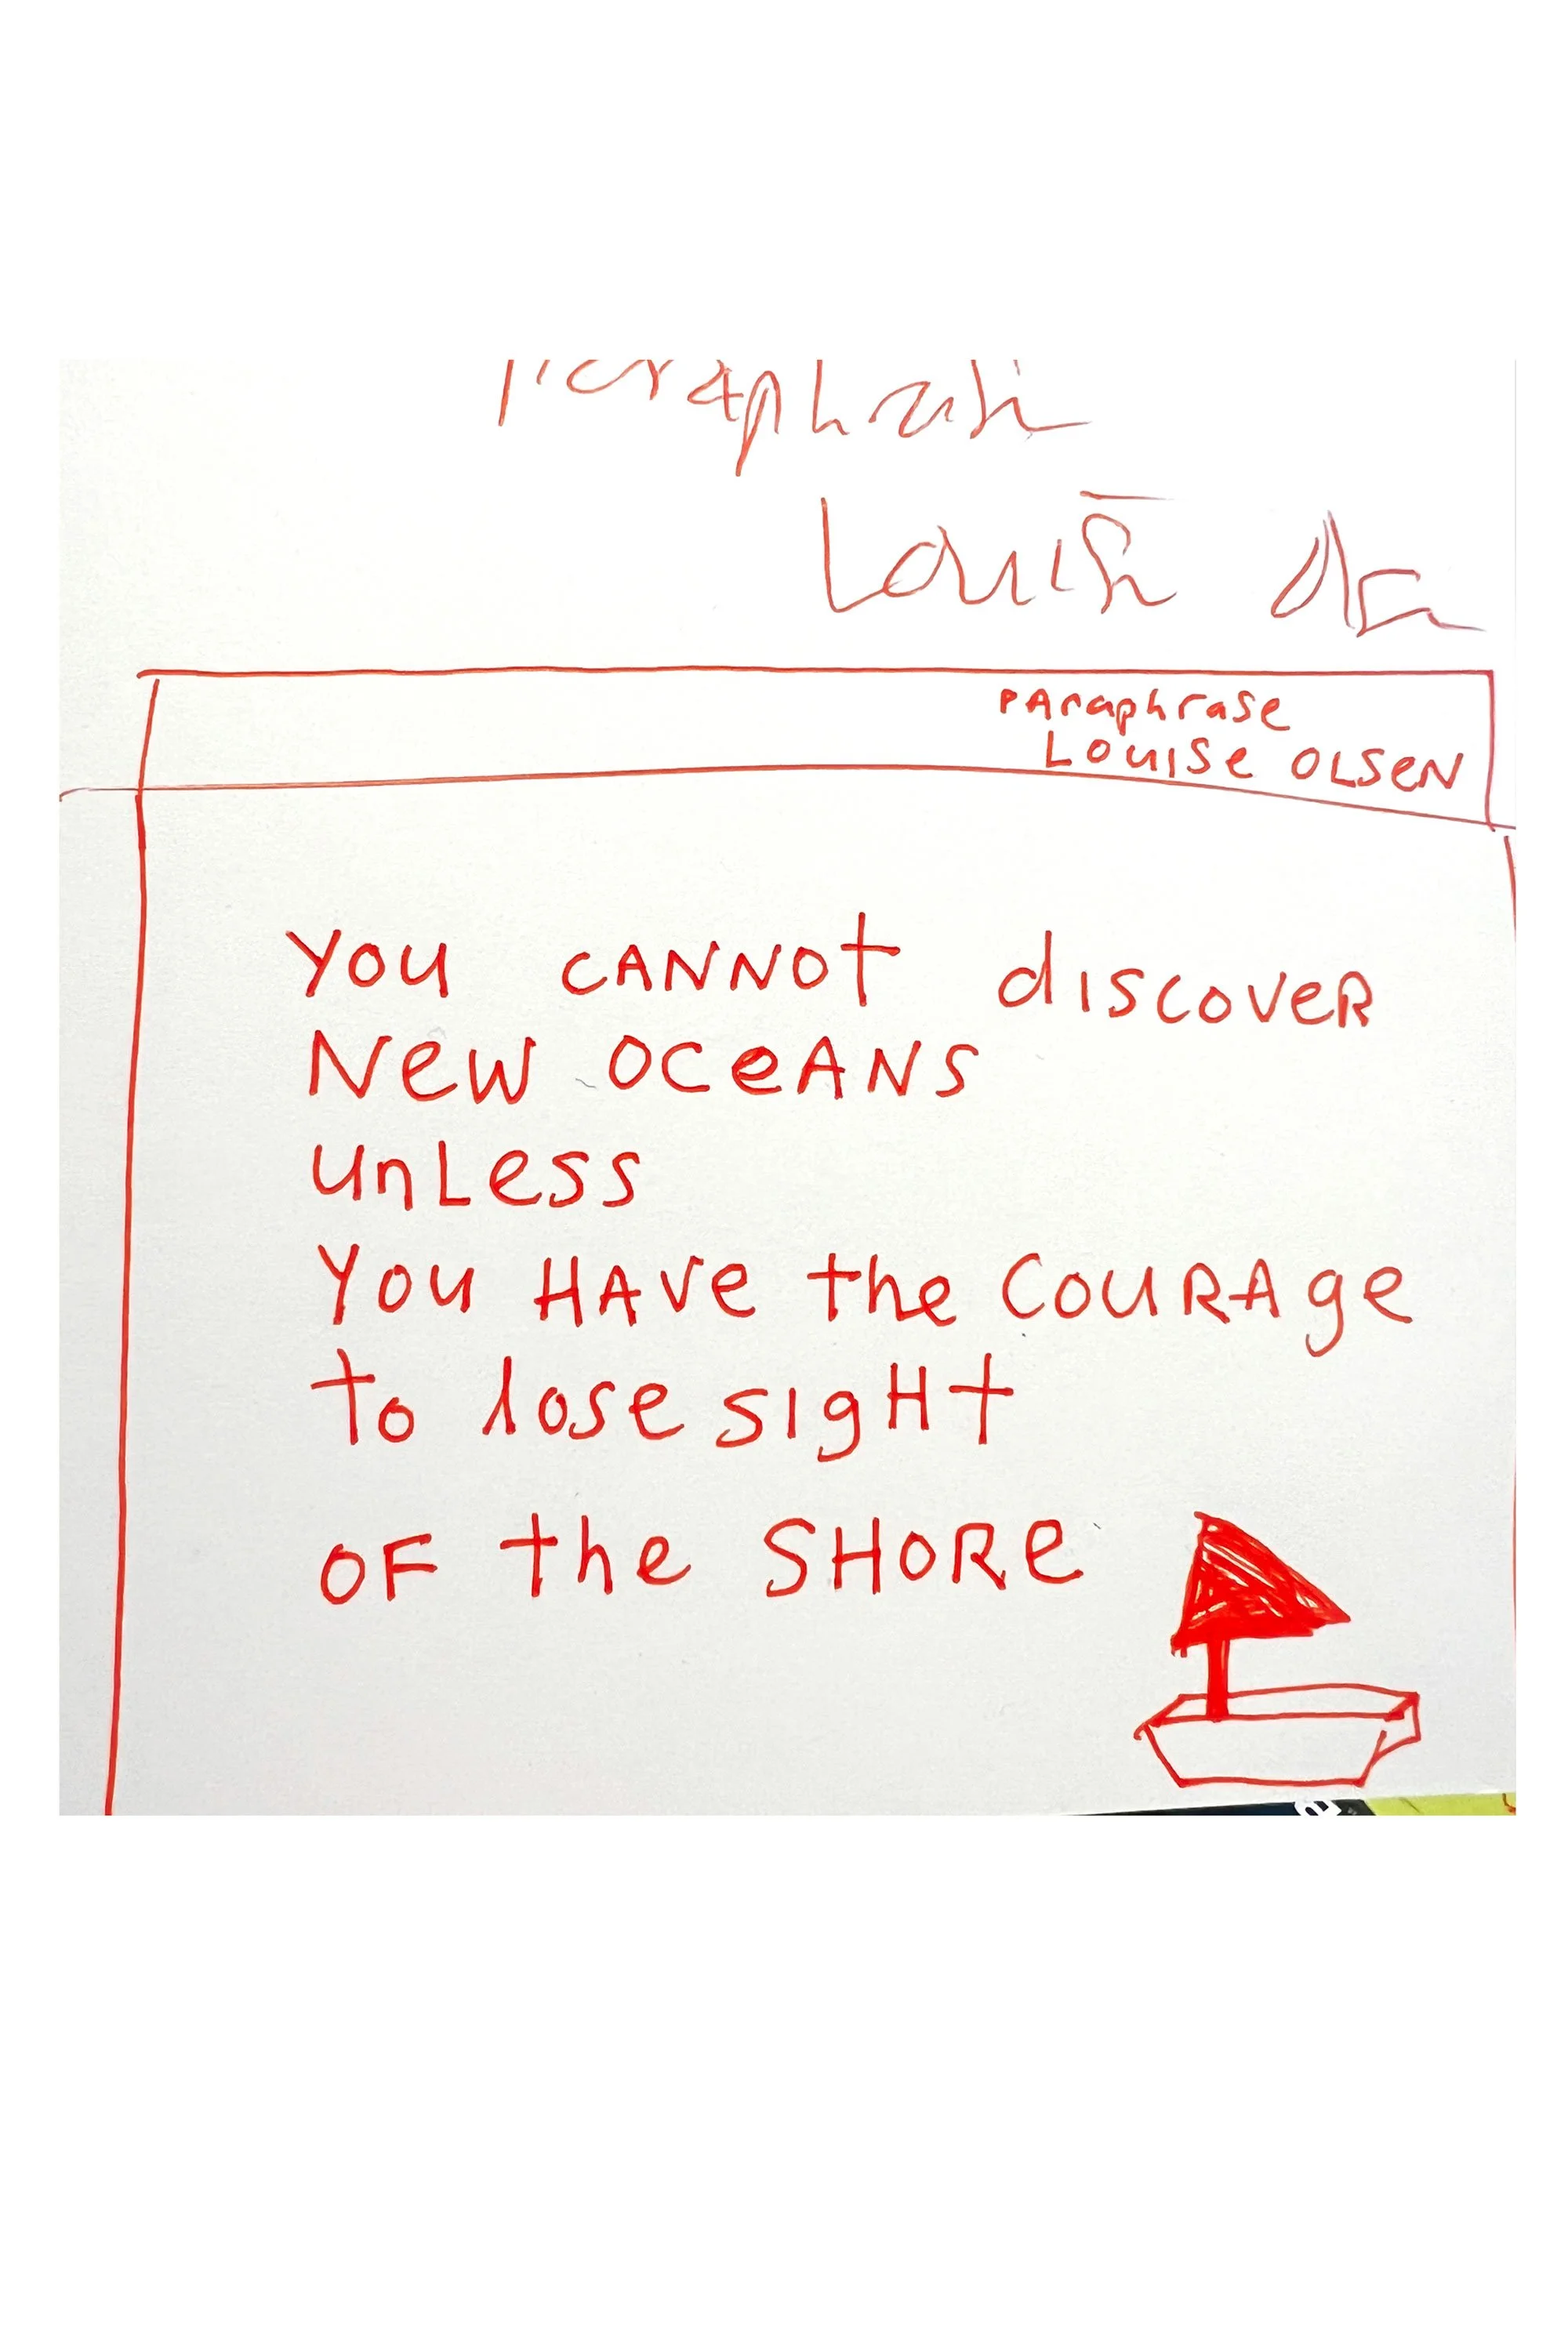 Paraphrase
Louise
PAraphrase
LOUISe OLSeN
You CANNOt discoveR
New oceANS
unLess
You HAVe the COURAge
to lose sigHt
OF the SHORe